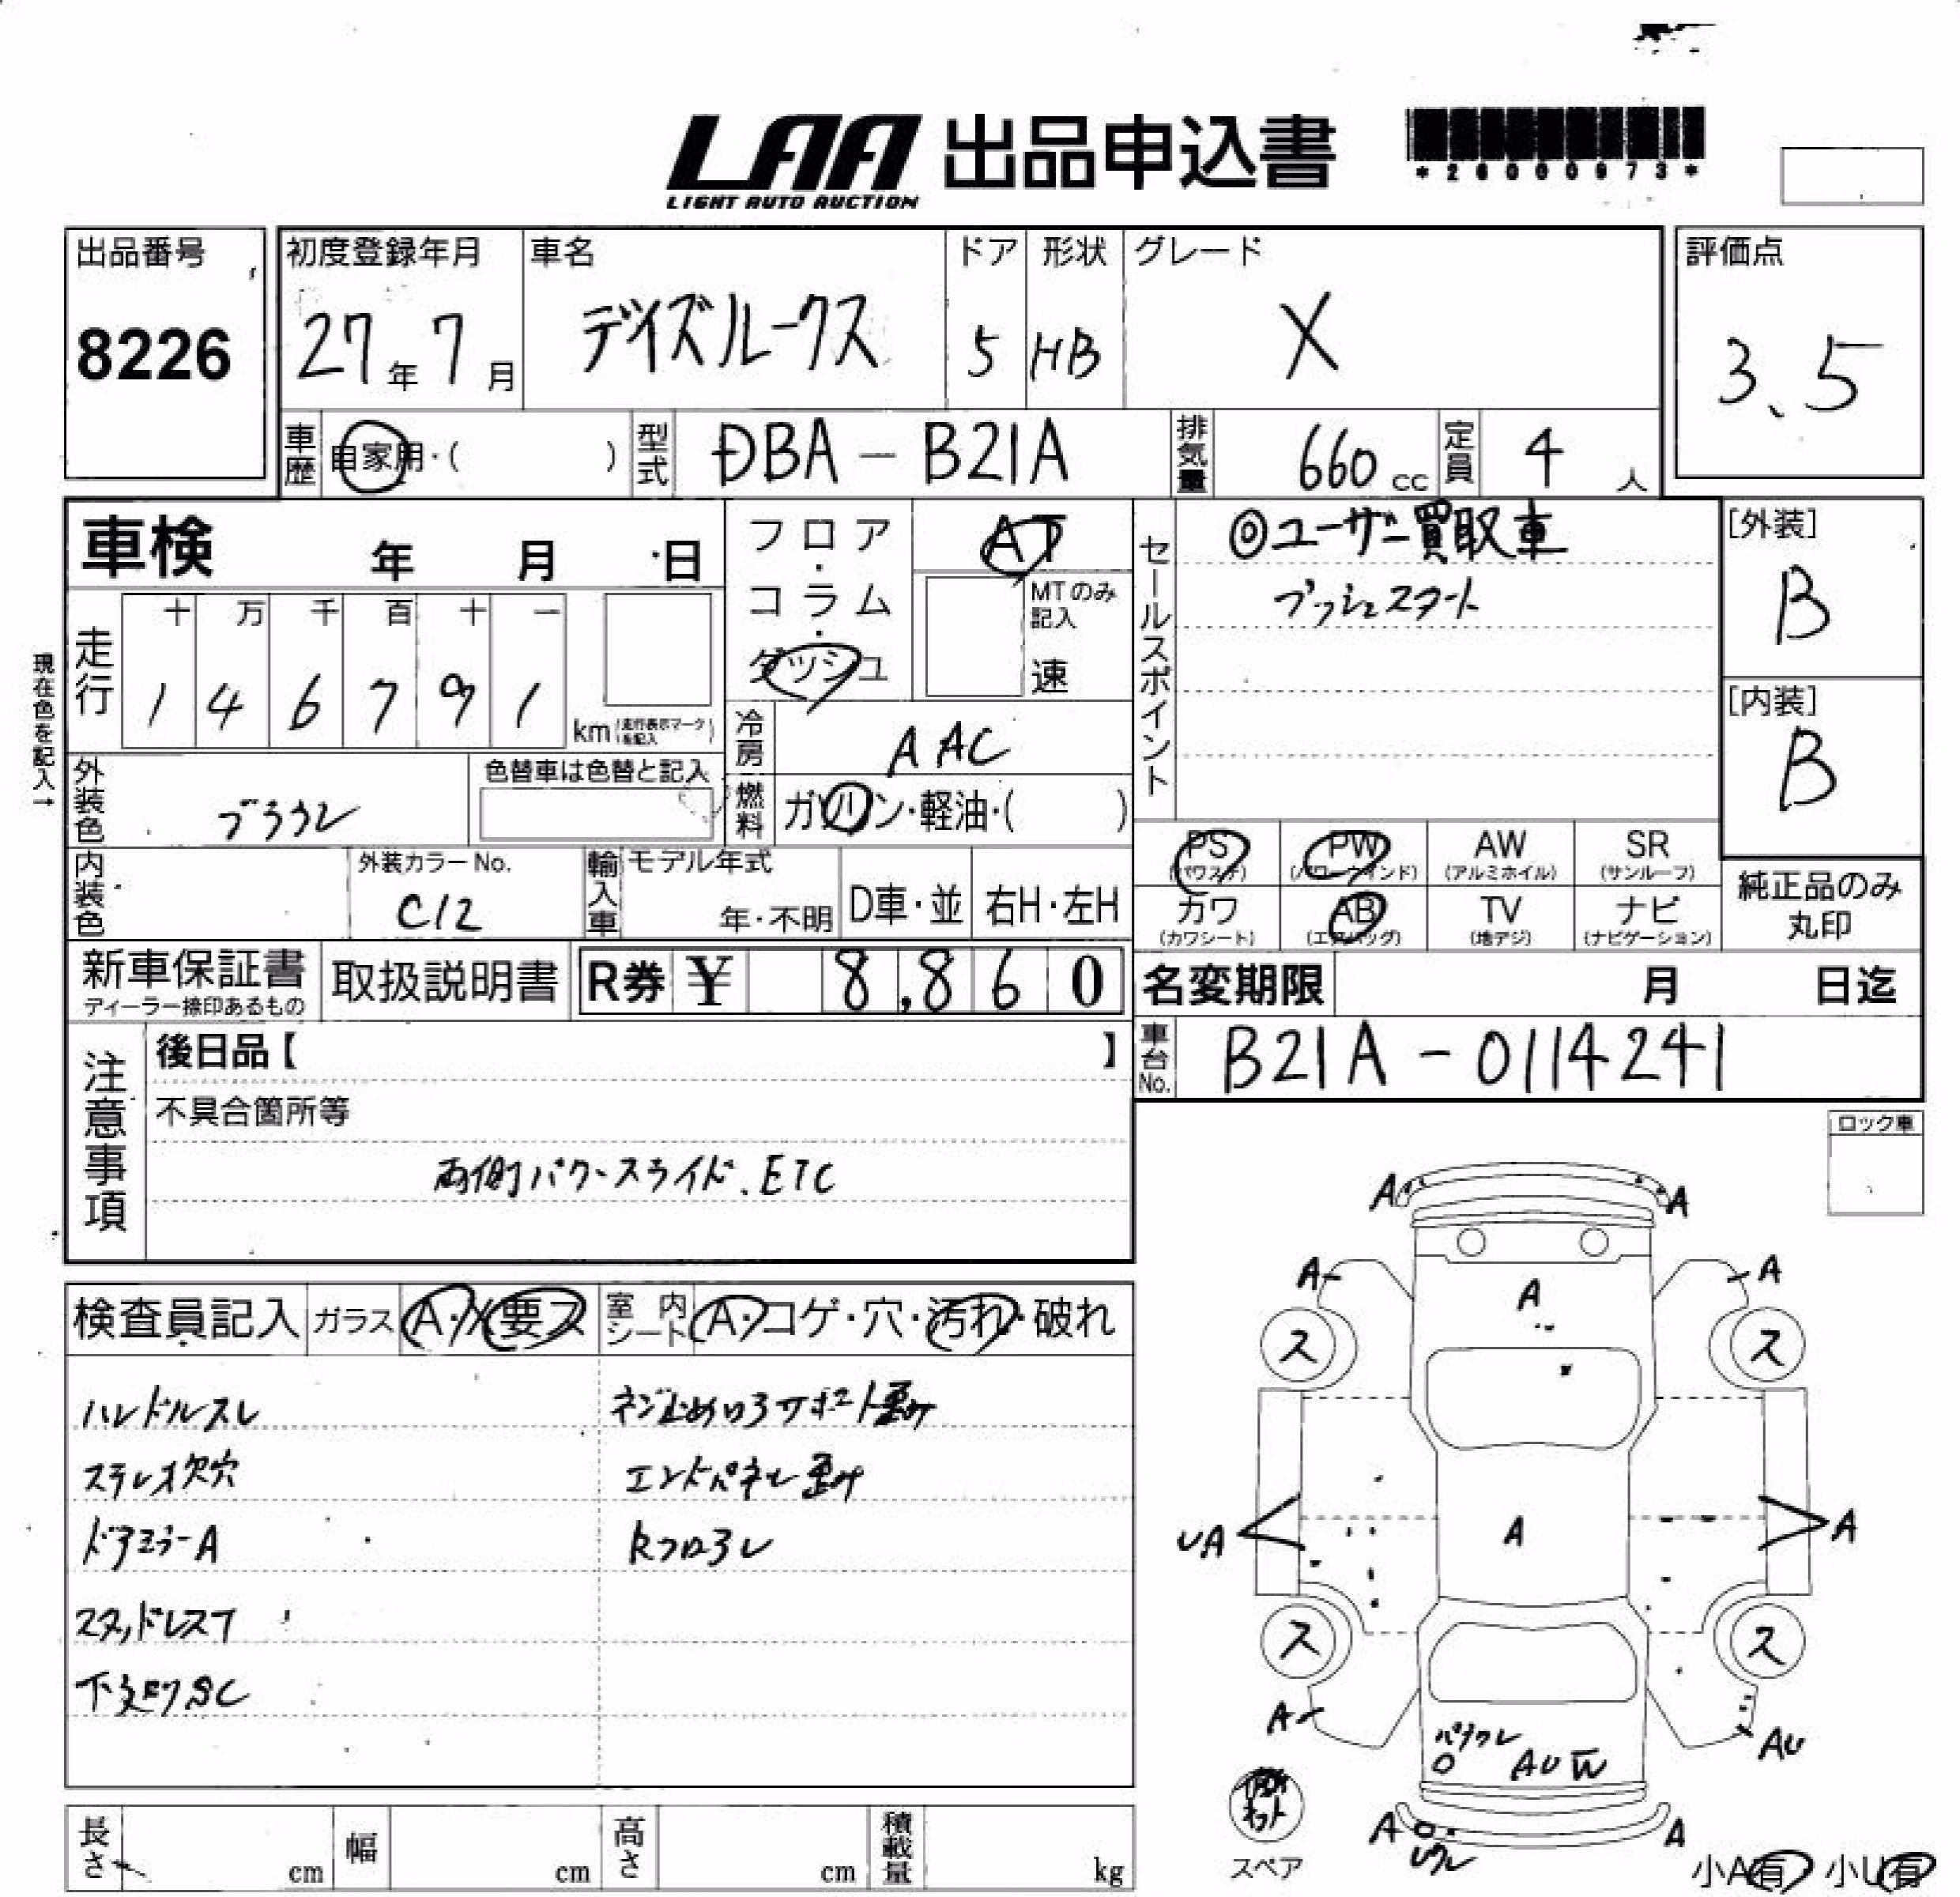 LAA 出品申込書
LIGHT AUTO AUCTION
*26000973*
出品番号
8226
初度登録年月
27年 7月
車名
デイズルークス
ドア
5
形状
HB
グレード
X
評価点
3.5
車歴
自家用・( )
型式
DBA - B21A
排気量
660 cc
定員
4 人
車検 年 月 日
フロア・コラム・ダッシュ
AT
MTのみ記入
速
セールスポイント
◎ユーザー買取車
プッシュスタート
[外装]
B
[内装]
B
現在色を記入→
走行
十 万 千 百 十 一
1 4 6 7 9 1
km (走行表示マークを記入)
冷房
AAC
外装色
ブラウン
色替車は色替と記入
燃料
ガソリン・軽油・( )
内装色
外装カラーNo.
C12
輸入車
モデル年式
年・不明
D車・並
右H・左H
PS (パワステ)
PW (パワーウインド)
AW (アルミホイル)
SR (サンルーフ)
カワ (カワシート)
AB (エアバッグ)
TV (地デジ)
ナビ (ナビゲーション)
純正品のみ丸印
新車保証書
ディーラー捺印あるもの
取扱説明書
R券 ¥ 8,860
名変期限 月 日迄
車台No.
B21A - 0114241
注意事項
後日品【 】
不具合箇所等
両側パワースライド、ETC
ロック車
検査員記入
ガラス A・X 要ス
室内シート A・コゲ・穴・汚れ・破れ
ハンドルスレ
ステレオ欠穴
ドアミラーA
スタッドレスT
下廻りSC
ネジ止めコアサポート歪み
エンドパネル歪み
A A
A A
A
ス ス
UA A A
ス ス
A AU
AU W
A A
スペア
小A有 小U有
長さ cm
幅 cm
高さ cm
積載量 kg